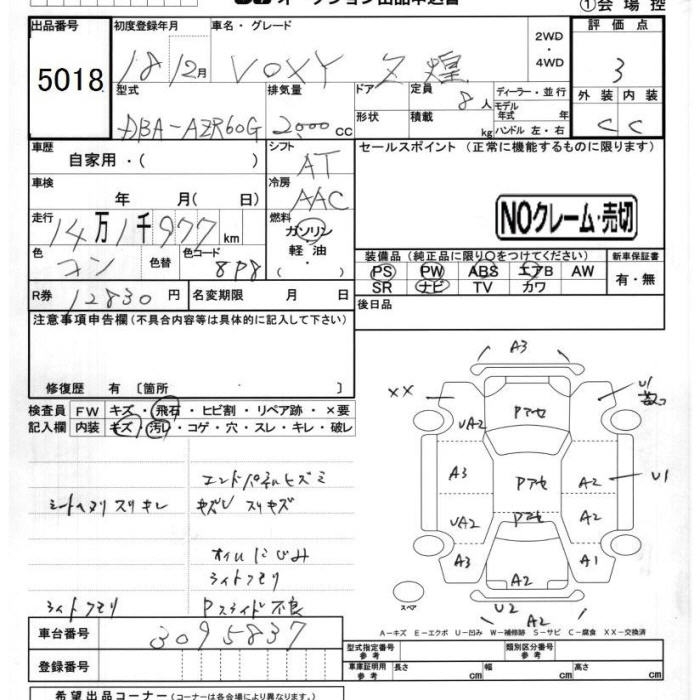 オークション出品申込書
①会場控
出品番号 5018
初度登録年月 18 12月
車名・グレード VOXY Z 煌
2WD・4WD
評価点 3
型式 DBA-AZR60G
排気量 2000cc
ドア
形状
定員 8人
積載 kg
ディーラー・並行
モデル年式 年
ハンドル 左・右
外装 C 内装 C
車歴 自家用・( )
シフト AT
セールスポイント (正常に機能するものに限ります)
車検 年 月( 日)
冷房 AAC
NOクレーム・売切
走行 14万1千977km
燃料 ガソリン 軽油・( )
色 コン 色替 色コード 8P8
装備品 (純正品に限り○をつけてください) 新車保証書
PS PW ABS エアB AW
SR ナビ TV カワ
有・無
R券 12830円 名変期限 月 日
後日品
注意事項申告欄 (不具合内容等は具体的に記入して下さい)
修復歴 有 〔箇所 〕
検査員記入欄
FW キズ・飛石・ヒビ割・リペア跡・×要
内装 キズ・汚レ・コゲ・穴・スレ・キレ・破レ
エンドパネルヒズミ
シートヘタリ スリキレ キズU スリキズ
オイルにじみ
ライトクモリ
ライトクモリ Pスライド不良
A3
XX UA2 Pアセ U1
A3 Pアセ A2 U1
UA2 Pアセ A2
A3 A2 A1
スペア U2 A2
A-キズ E-エクボ U-凹み W-補修跡 S-サビ C-腐食 XX-交換済
車台番号 3095837
登録番号
型式指定番号 参考 類別区分番号 参考
車庫証明用 参考 長さ cm 幅 cm 高さ cm
希望出品コーナー (コーナーは各会場により異なります)